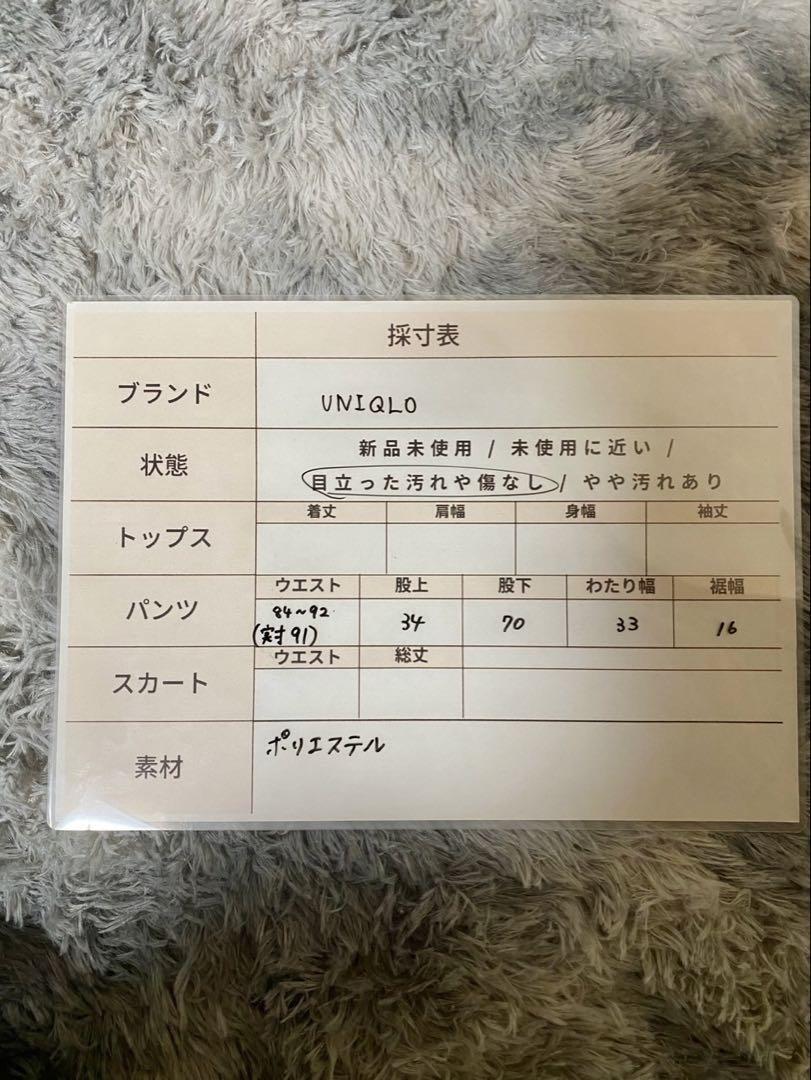 採寸表
ブランド UNIQLO
状態 新品未使用 / 未使用に近い /
目立った汚れや傷なし / やや汚れあり
トップス 着丈 肩幅 身幅 袖丈
パンツ ウエスト 股上 股下 わたり幅 裾幅
84~92 34 70 33 16
(実寸91)
スカート ウエスト 総丈
素材 ポリエステル